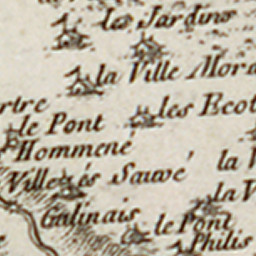 les Jardins
la Ville Mora
les Ecot
le Pont
Hommené
Ville és Sauvé
la V
la V
Galinais
le Pont
Philis